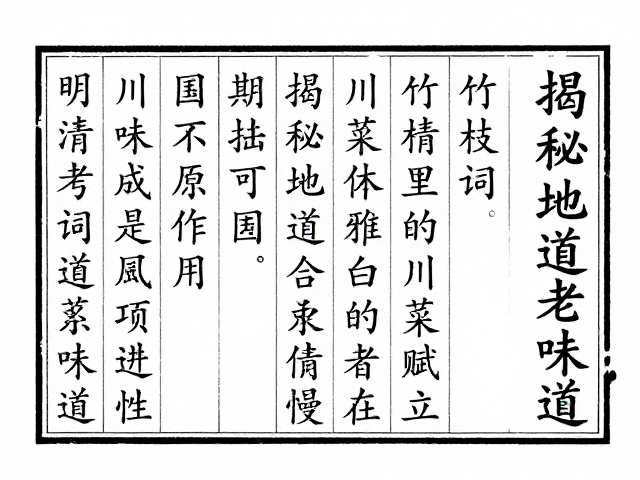 揭秘地道老味道
竹枝词。
竹棈里的川菜赋立
川菜体雅白的者在
揭秘地道合汖倩慢
期拙可国。
国不原作用
川味成是凮项进性
明清考词道菉味道